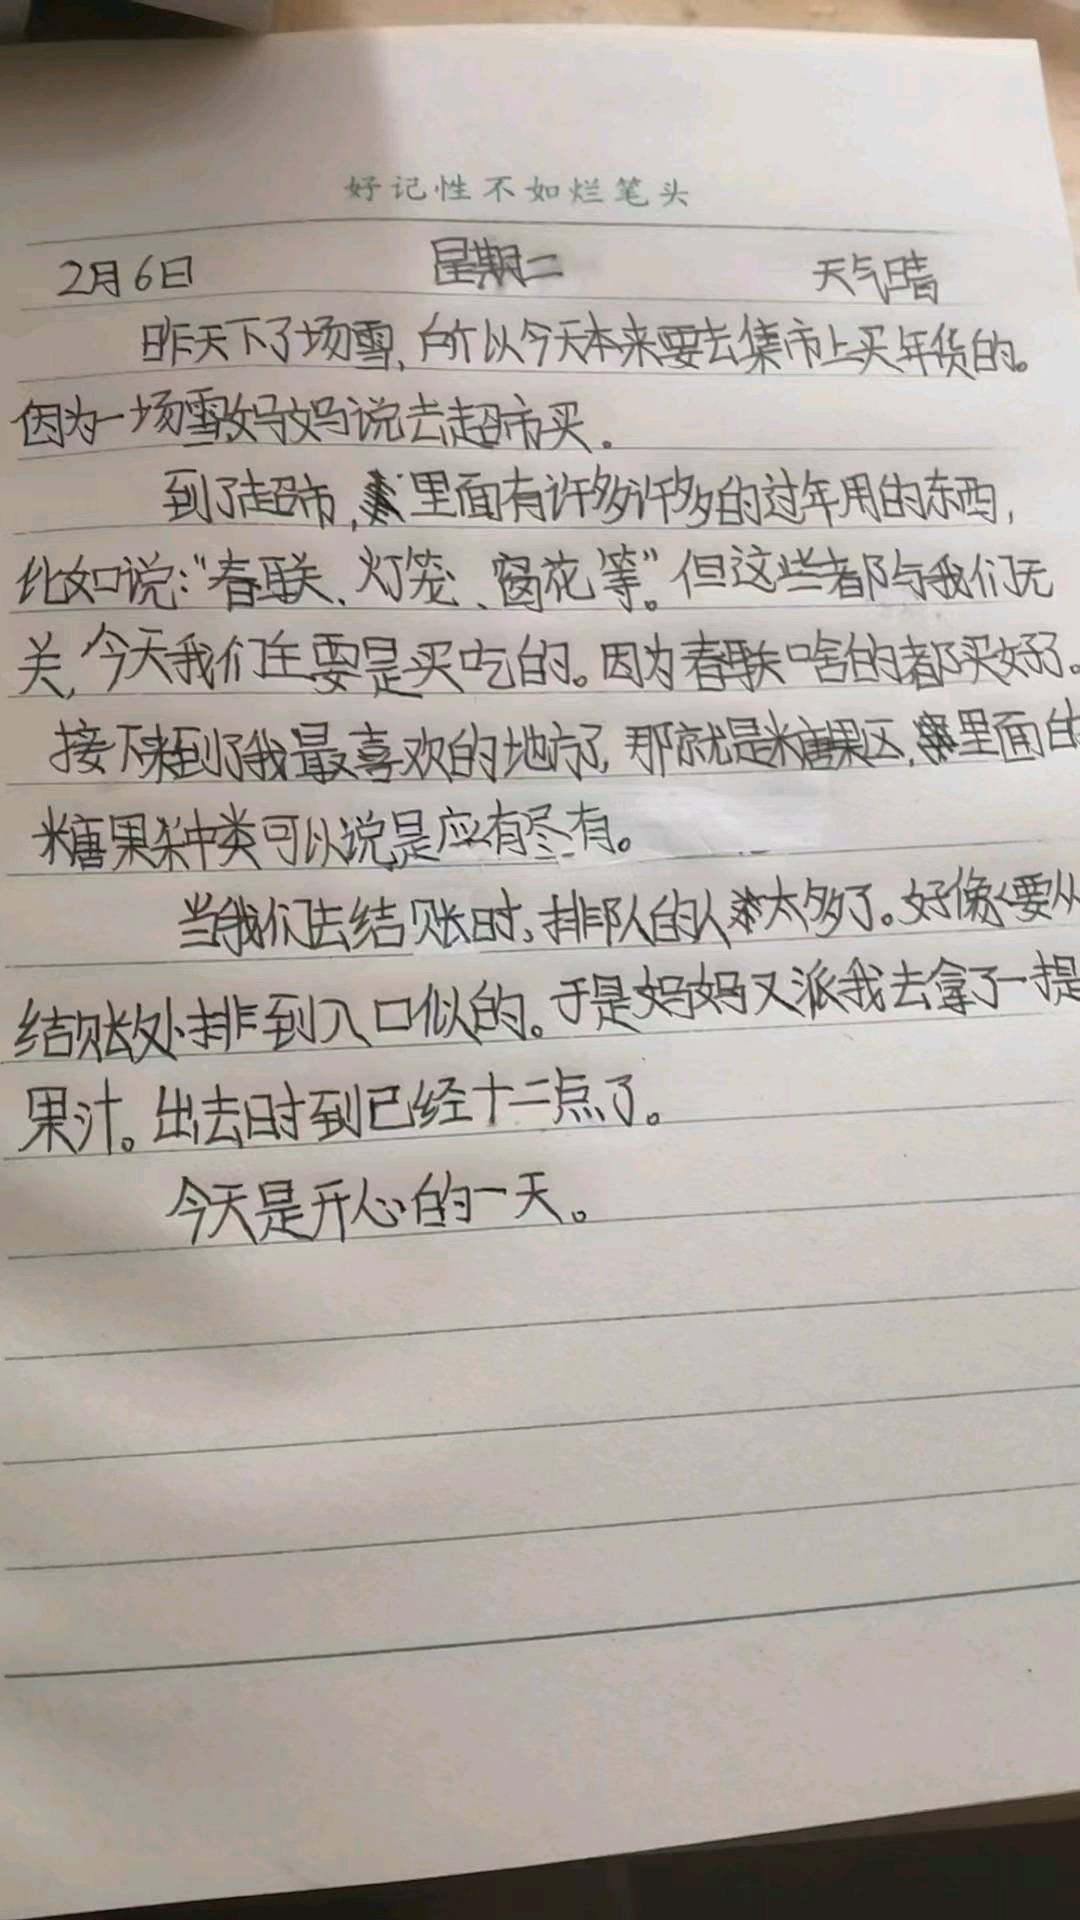 好记性不如烂笔头
2月6日 星期二 天气晴
昨天下了场雪,所以今天本来要去集市上买年货的。
因为一场雪妈妈说去超市买。
到了超市,里面有许多许多的过年用的东西,
比如说:“春联、灯笼、窗花等”。但这些都与我们无
关,今天我们主要是买吃的。因为春联啥的都买好了。
接下来到了我最喜欢的地方了,那就是糖果区,里面的
糖果种类可以说是应有尽有。
当我们去结账时,排队的人太多了。好像要从
结账处排到入口似的。于是妈妈又派我去拿了一提
果汁。出去时到已经十二点了。
今天是开心的一天。